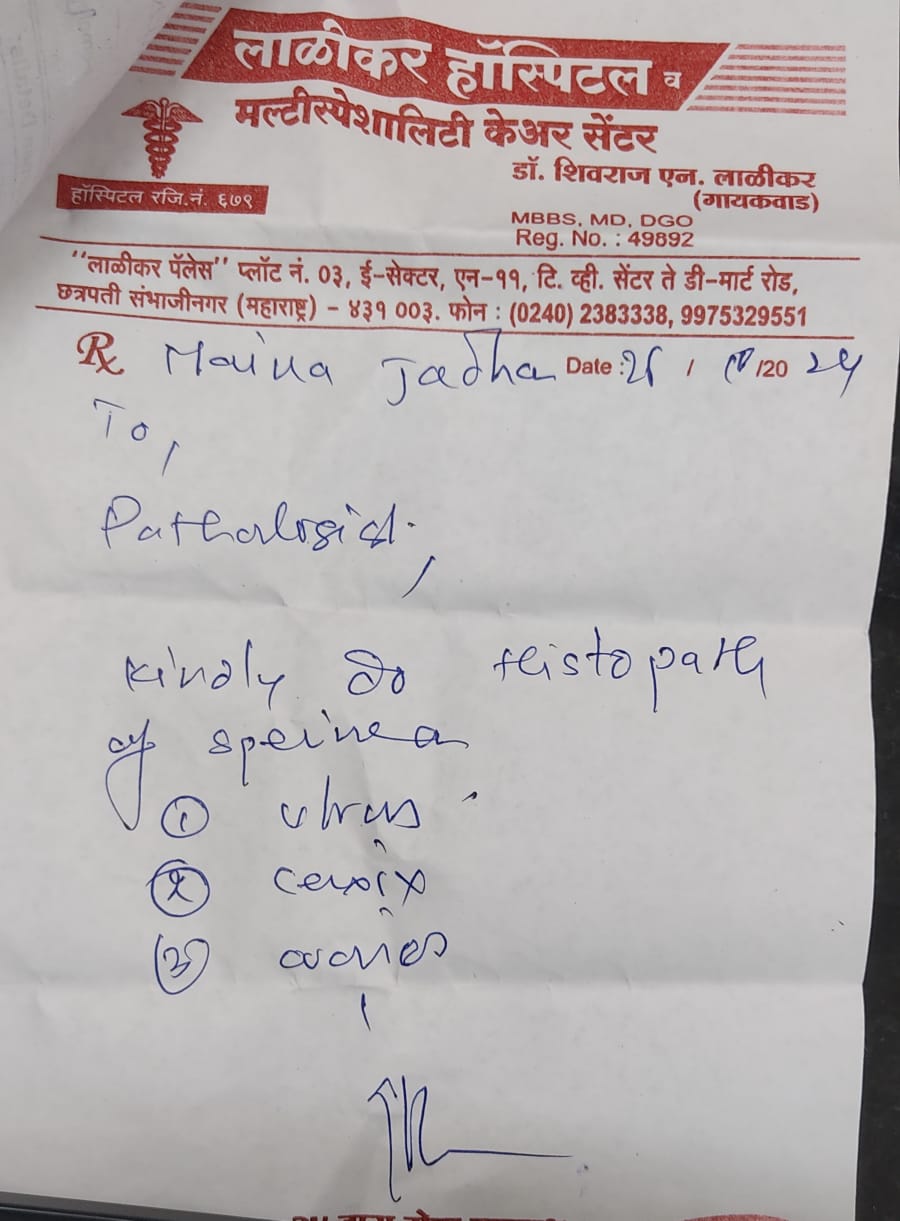 लाळीकर हॉस्पिटल व
मल्टीस्पेशालिटी केअर सेंटर
डॉ. शिवराज एन. लाळीकर
(गायकवाड)
हॉस्पिटल रजि.नं. ६७९
MBBS, MD, DGO
Reg. No. : 49892
"लाळीकर पॅलेस" प्लॉट नं. 03, ई-सेक्टर, एन-११, टि. व्ही. सेंटर ते डी-मार्ट रोड,
छत्रपती संभाजीनगर (महाराष्ट्र) - ४३१ 003. फोन : (0240) 2383338, 9975329551
Rx Maina Jadha Date : / /20 24
To,
Pathologist,
Kindly do Histopath
of
① utrus
② cervix
③ ovaries